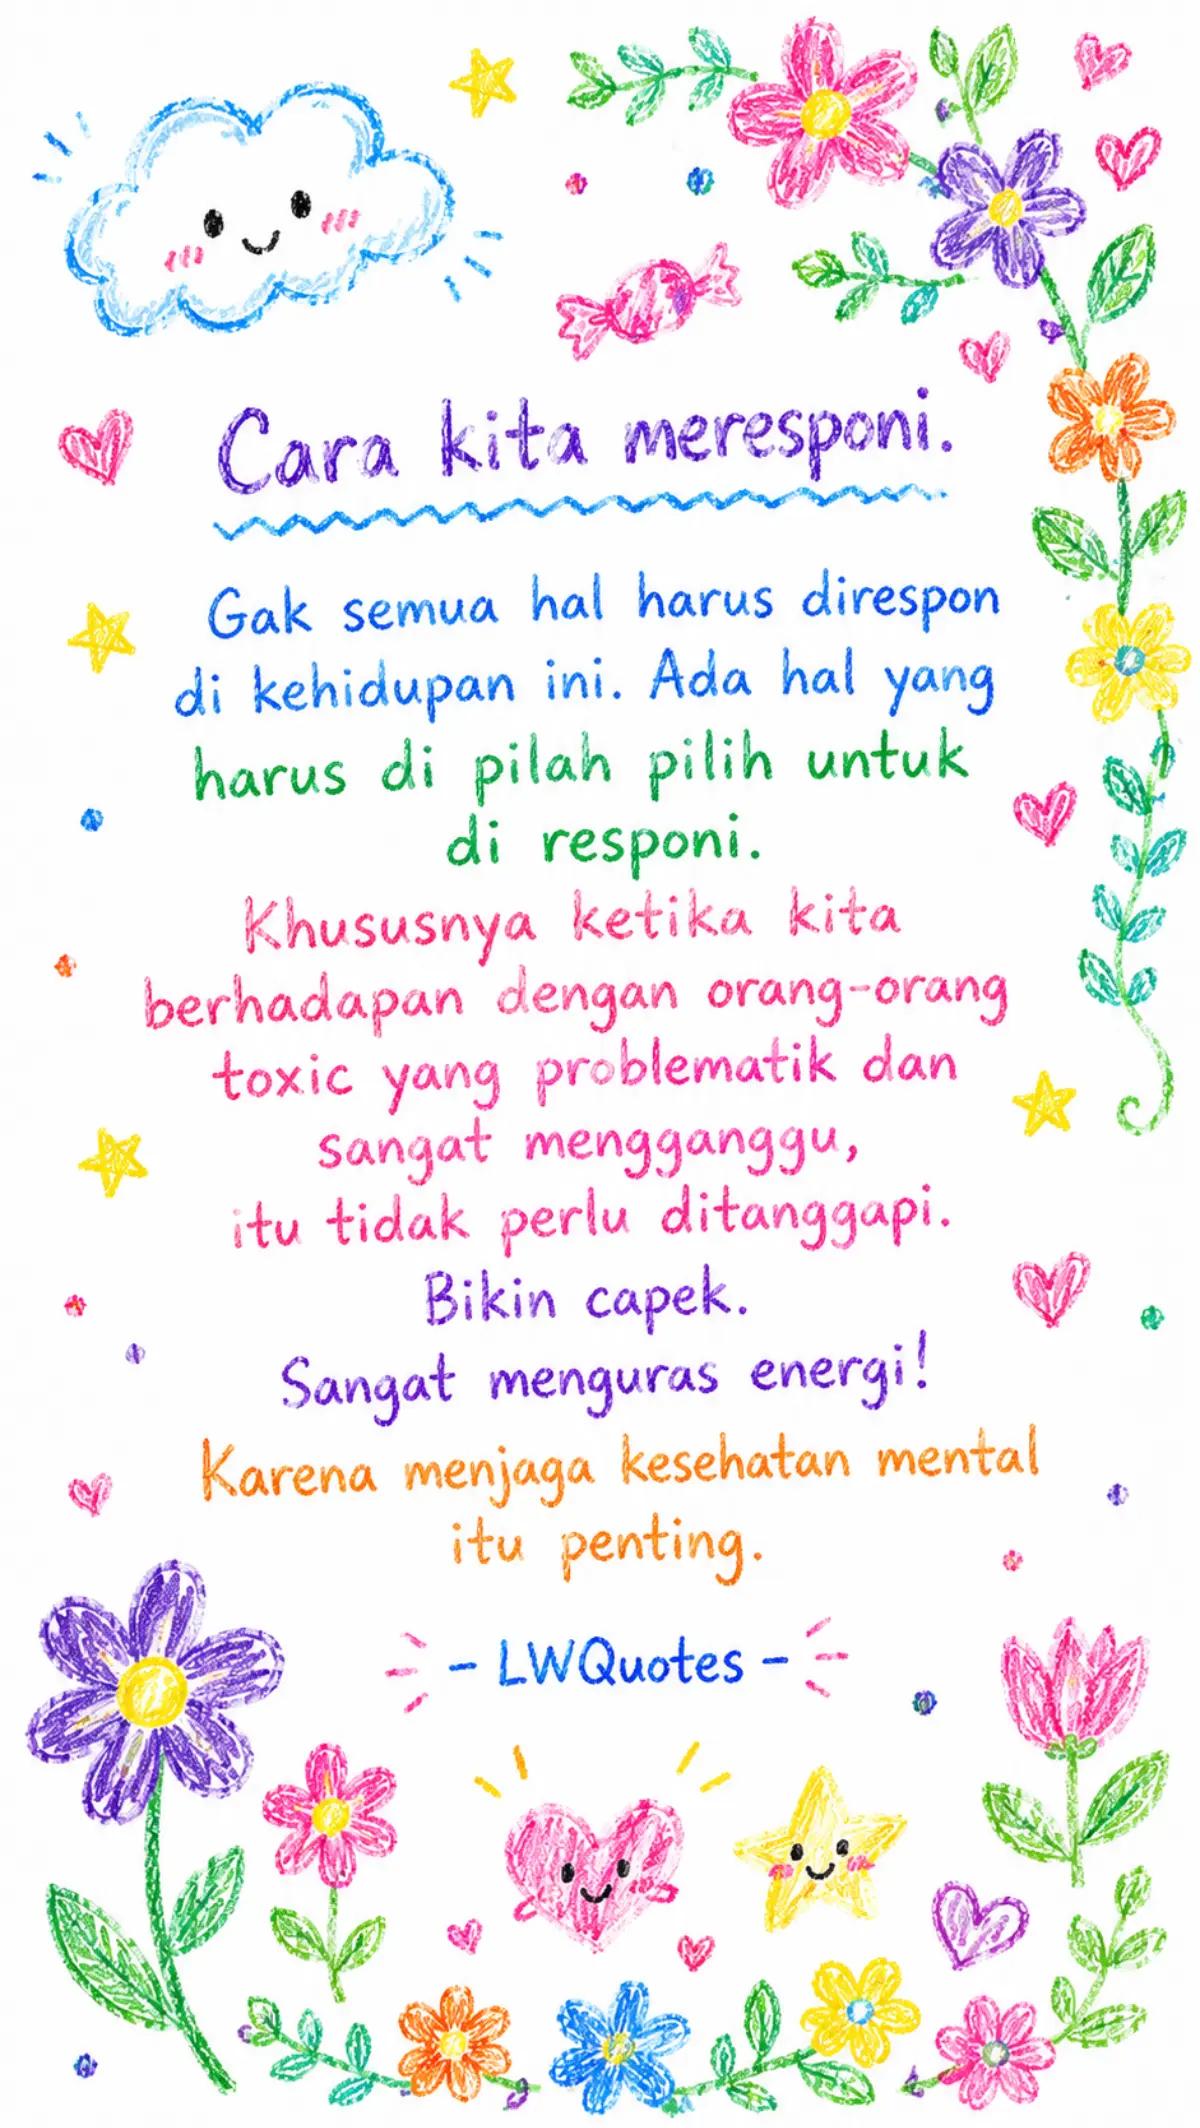 Cara kita meresponi.
Gak semua hal harus direspon
di kehidupan ini. Ada hal yang
harus di pilah pilih untuk
di responi.
Khususnya ketika kita
berhadapan dengan orang-orang
toxic yang problematik dan
sangat mengganggu,
itu tidak perlu ditanggapi.
Bikin capek.
Sangat menguras energi!
Karena menjaga kesehatan mental
itu penting.
- LWQuotes -